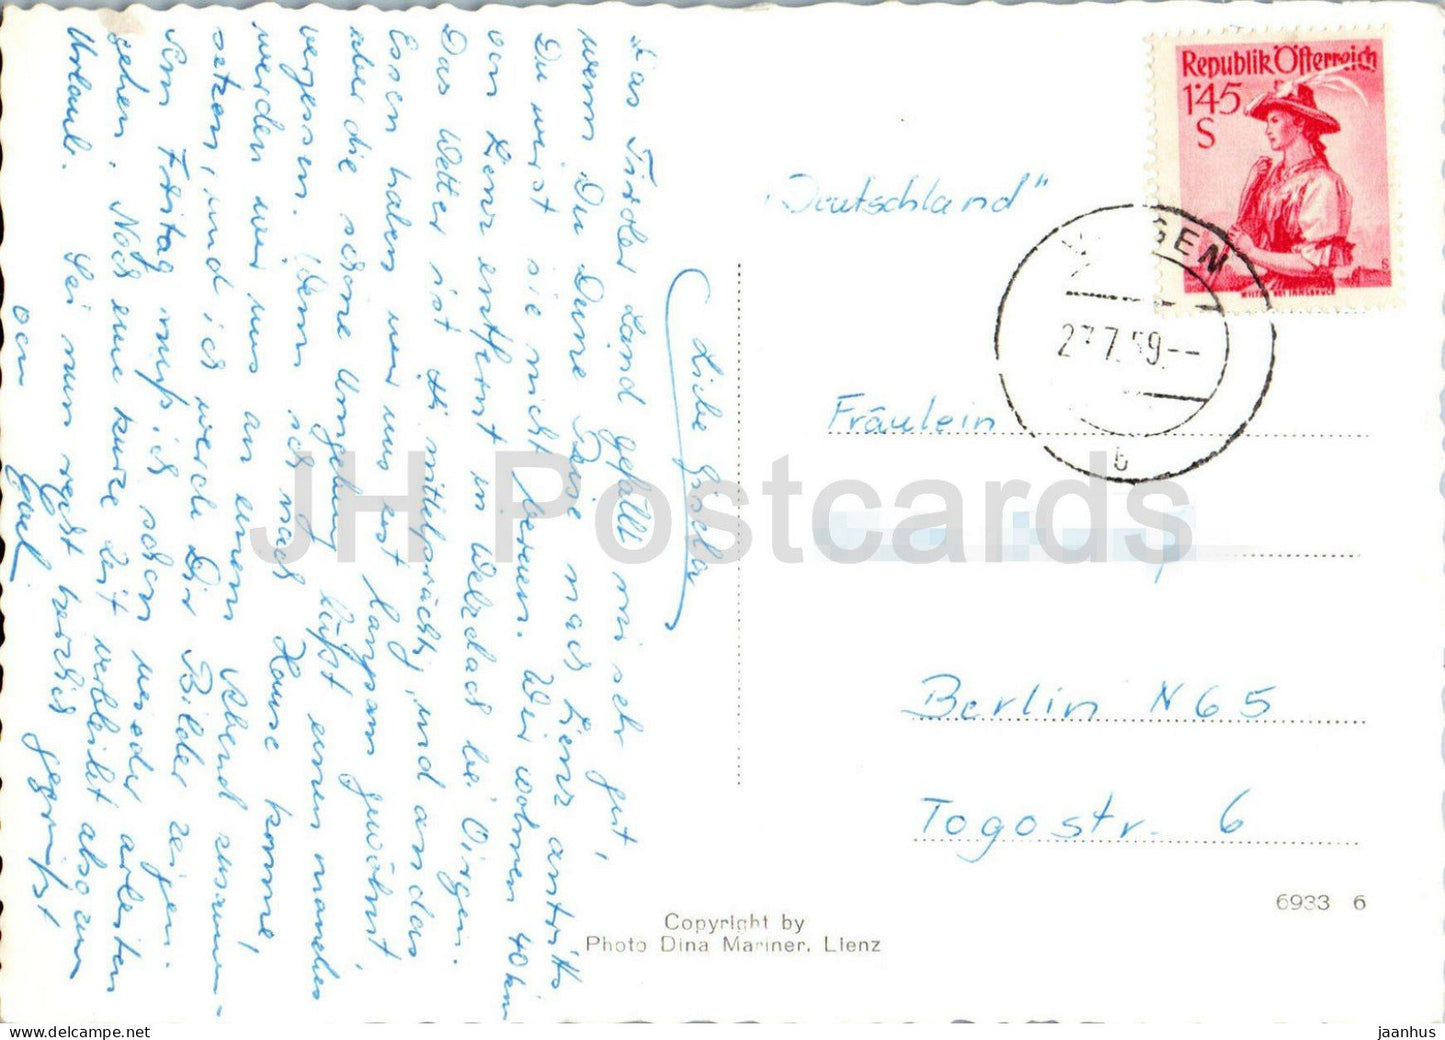 Liebe Gisela
das Tiroler Land gefällt mir sehr gut,
wenn Du Deine Reise nach Lienz antritts
Du wirst sie nicht bereuen. Wir wohnen 40 km
von Lienz entfernt in Welzelach bei Virgen.
Das Wetter ist mittelprächtig, und an das
Essen haben wir uns erst langsam gewöhnt
aber die schöne Umgebung läßt einen manches
vergessen. Wenn ich nach Hause komme,
werden wir uns an einem Abend zusamm-
setzen, und ich werde Dir Bilder zeigen.
Am Freitag muß ich schon wieder arbeiten
gehen. Noch eine kurze Zeit verbleibt also zum
Urlaub. Sei nun recht herzlich gegrüßt
von
"Deutschland"
Fräulein
Berlin N 65
Togostr. 6
Republik Österreich
1·45
S
WILTEN BEI INNSBRUCK
GEN
27.7.59.--
b
Copyright by
Photo Dina Mariner, Lienz
6933 6
JH Postcards
delcampe.net
jaanhus